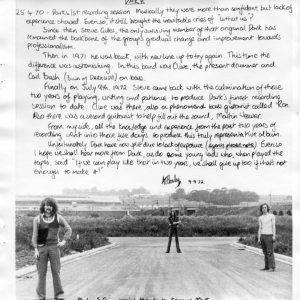 DARK
25.4.70 - Dark's 1st recording session. Musically they were more than confident but lack of
experience showed. Even so, it still brought the inevitable cries of "What is?"
Since then Steve Giles, the only surviving member of their original Dark has
remained the backbone of the group's gradual change and improvement towards
professionalism.
Then in 1971 he was back, with another line up to try again. This time the
difference was astonishing. In this band was Clive, the present drummer and
Carl Bush on bass.
Finally on July 9th. 1972 Steve came back with the culmination of these
two years of playing, writing and patience to produce Dark's finest recording
session to date. Clive was there also a phenomenal bass guitarist called 'Ron'
Also there was a second guitarist to help fill out the sound, Martin Weaver.
From my side, all the knowledge and experience from the past two years of
recording went into these two days to produce this truly representative album.
Unfortunately Dark have now split due to lack of exposure Even so
I hope we shall hear more from Dark, as do some young lady who, when played the
tapes, said "If we can play like that in two years, we shall give up too if that's not
enough to make it!"
9.9.72